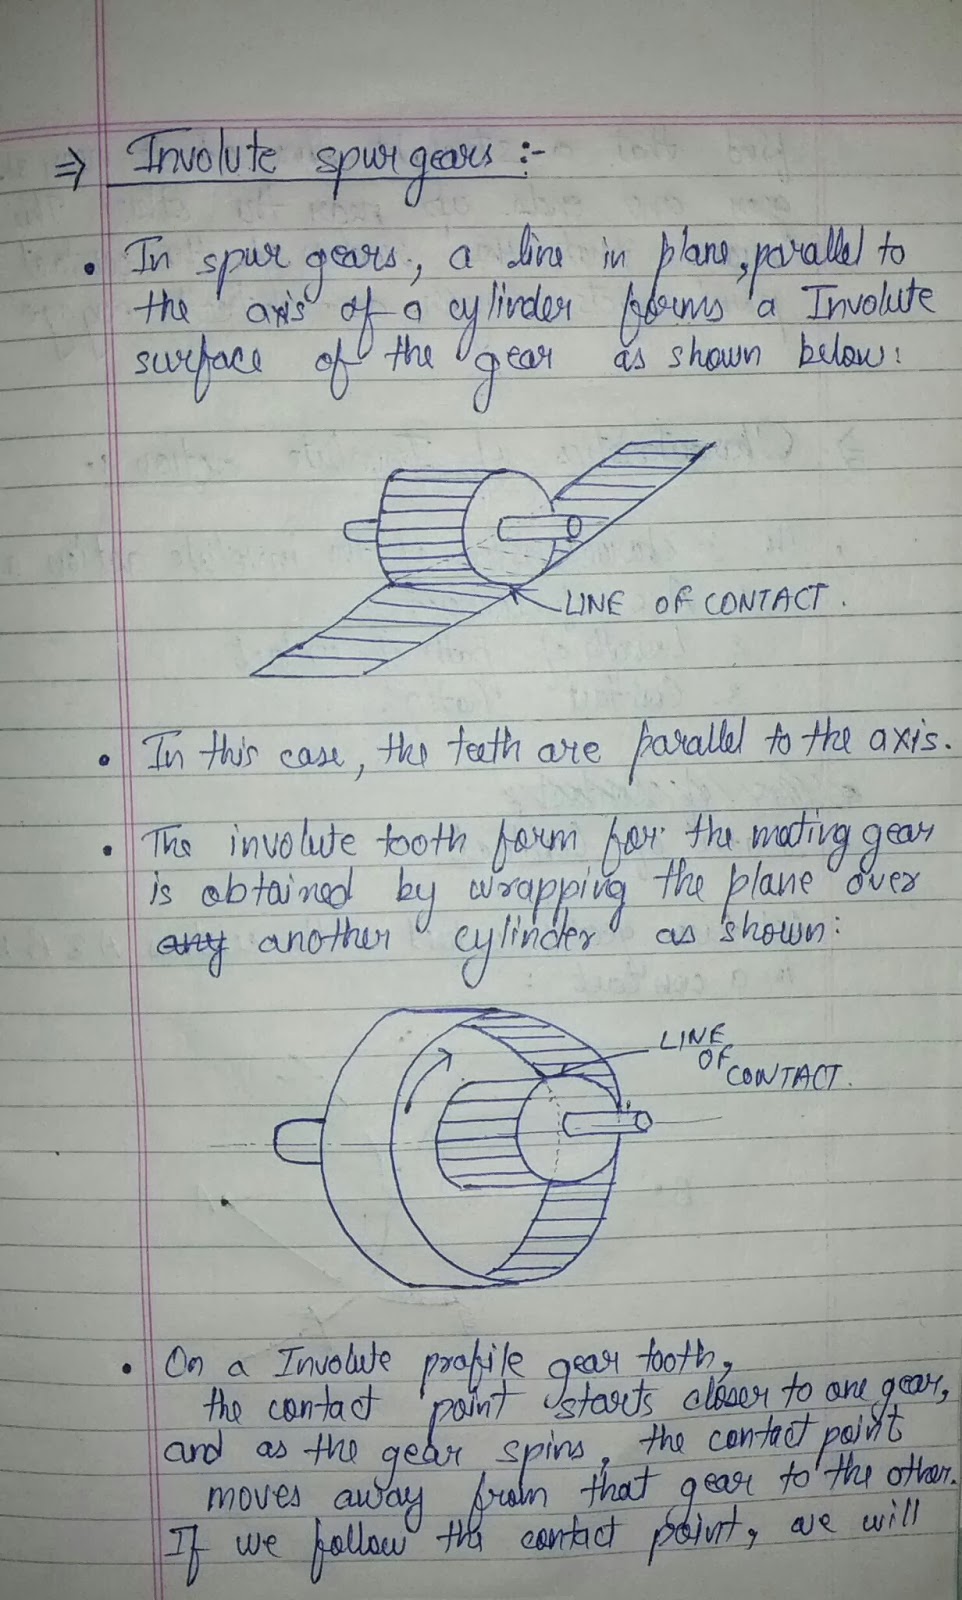 ⇒ Involute spur gears :-
• In spur gears, a line in plane, parallel to
the axis of a cylinder forms a Involute
surface of the gear as shown below:
LINE OF CONTACT.
• In this case, the teeth are parallel to the axis.
• The involute tooth form for the mating gear
is obtained by wrapping the plane over
any another cylinder as shown:
LINE
OF
CONTACT.
• On a Involute profile gear tooth,
the contact point starts closer to one gear,
and as the gear spins, the contact point
moves away from that gear to the other.
If we follow the contact point, we will